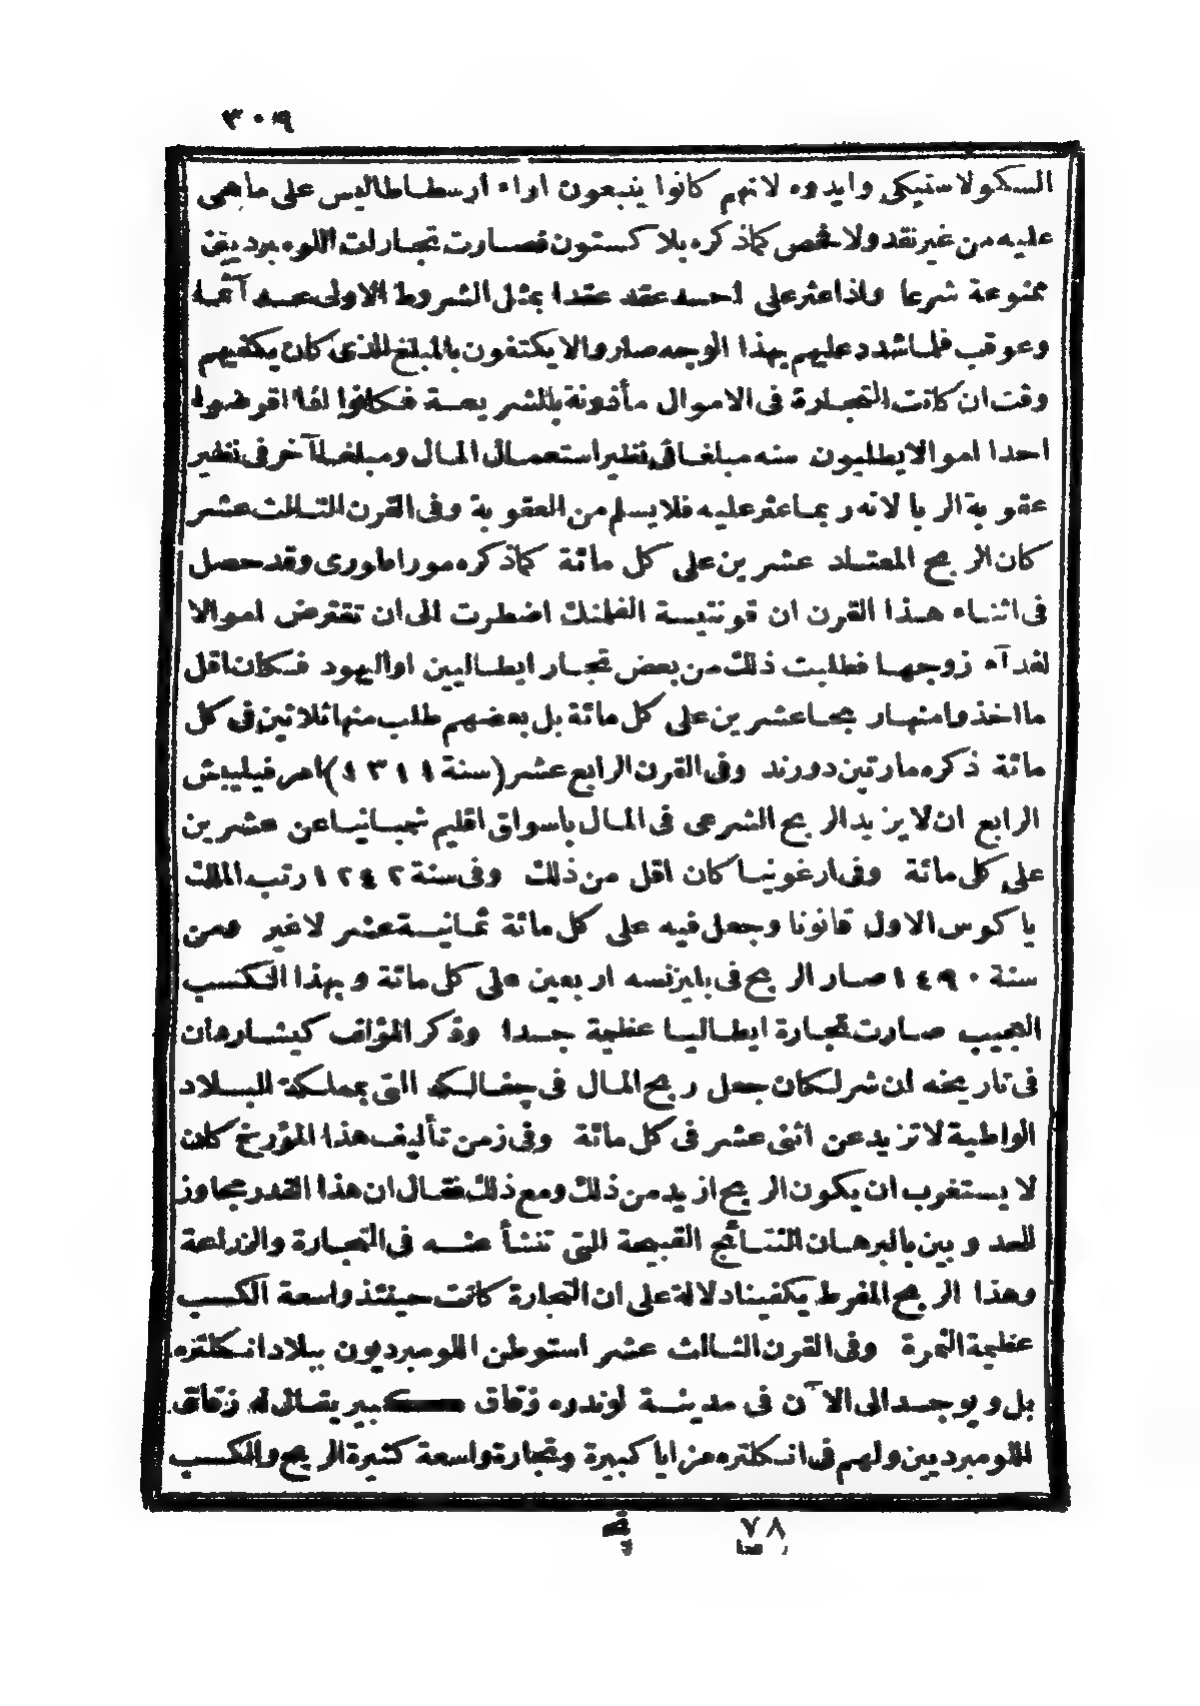 ٣٠٩
السكولاستيكى وايدوه لانهم كانوا يتبعون اراء ارسطاطاليس على ماهى
عليه من غير نقد ولا فحص كماذكره بلاكستون فصارت تجارات اللومبرديين
ممنوعة شرعا واذاعثر على احد عقد عقدا بمثل الشروط الاولى عد آثما
وعوقب فلما شدد عليهم بهذا الوجه صاروا لا يكتفون بالمبلغ الذى كان يكفيهم
وقت ان كانت التجارة فى الاموال مأذونة بالشريعة فكانوا اذا اقرضوا
احدا اموالا يطلبون منه مبلغا فى نظير استعمال المال ومبلغا آخر فى نظير
عقوبة الربا لانه ربما عثر عليه فلا يسلم من العقوبة وفى القرن الثالث عشر
كان الربح المعتاد عشرين على كل مائة كماذكره موراطورى وقد حصل
فى اثناء هذا القرن ان قونتيسة الفلمنك اضطرت الى ان تقترض اموالا
لفداء زوجها فطلبت ذلك من بعض تجار ايطاليين او اليهود فكان اقل
ما اخذوا منها ربحا عشرين على كل مائة بل بعضهم طلب منها ثلاثين فى كل
مائة ذكره مارتين دورند وفى القرن الرابع عشر (سنة ١٣١١) امر فيليبش
الرابع ان لا يزيد الربح الشرعى فى المال باسواق اقليم شمبانيا عن عشرين
على كل مائة وفى ارغونيا كان اقل من ذلك وفى سنة ١٢٤٢ رتب الملك
ياكوس الاول قانونا وجعل فيه على كل مائة ثمانية عشر لاغير ومن
سنة ١٤٩٠ صار الربح فى بليزنسه اربعين على كل مائة وبهذا الكسب
العجيب صارت تجارة ايطاليا عظيمة جدا وذكر المؤلف كيشاردان
فى تاريخه ان شرلكان جعل ربح المال فى جفالكه التى بمملكة البلاد
الواطية لا تزيد عن اثنى عشر فى كل مائة وفى زمن تأليف هذا المؤرخ كان
لا يستغرب ان يكون الربح ازيد من ذلك ومع ذلك فقال ان هذا القدر مجاوز
للحد وبين بالبرهان النتائج القبيحة التى تنشأ عنه فى التجارة والزراعة
وهذا الربح المفرط يكفينا دلالة على ان التجارة كانت حينئذ واسعة الكسب
عظيمة الثمرة وفى القرن الثالث عشر استوطن اللومبرديون ببلاد انكلتره
بل ويوجد الى الآن فى مدينة لوندره زقاق كبير يقال له زقاق
اللومبرديين ولهم فى انكلتره مزايا كبيرة وتجارة واسعة كثيرة الربح والكسب
٧٨